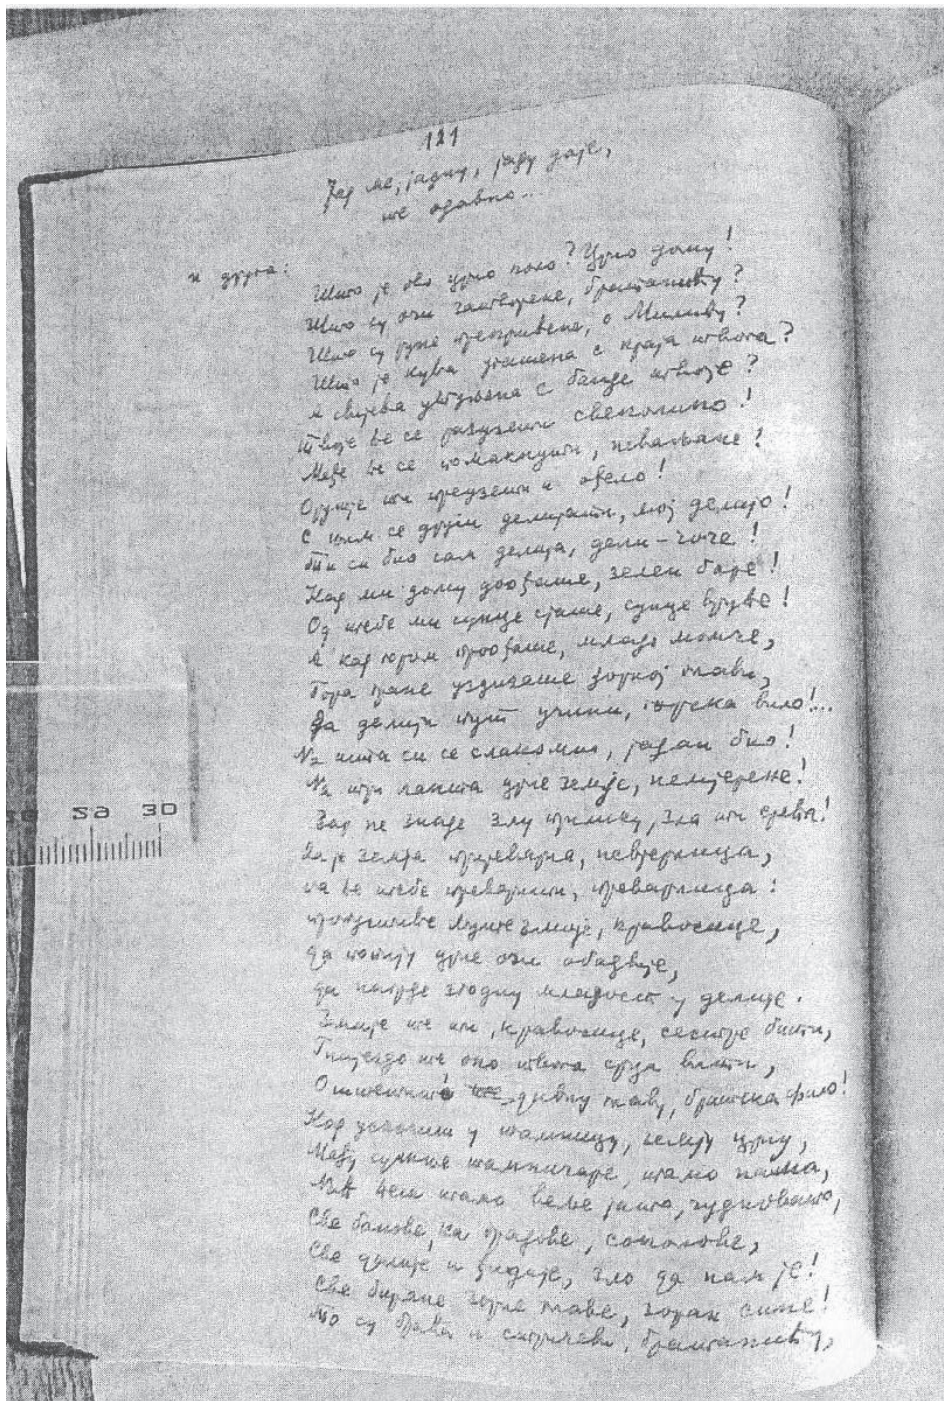 121
Јер ме, јадну, јаду даје,
те одавно...
и друга:
Што је ово црно коло? Црно дому!
Што су очи затворене, братанићу?
Што су руке прекривене, о Миливу?
Што је кућа угашена с краја твога?
и свијећа с банде твоје?
Твоје ће се разузети свеколико!
Међе ће се помакнути, неваљане!
Оружје ти преузети и одело!
С ким се други делијати, мој делијо!
Ти си био сам делија, дели-чоче!
Кад ми дому дођаше, зелен боре!
Од тебе ми сунце сјаше, сунце вруће!
А кад гором прођаше, младо момче,
Гора гране уздизаше горној глави,
Да делији пут учини, горска вило!...
На шта си се слакомио, јадан био!
На три лакта црне земље, немјерене!
Зар не знаде злу прилику, зла ти срећа!
Да је земља пријеварна, невјерница,
па ће тебе преварити, преварница:
љуте змије, крвосице,
да попију црне очи обадвије,
да нагрде згодну младост у делије.
Змије ће ти, крвосице, сестре бити,
Гнијездо ће око твога срца вити,
дивну главу, братска фало!
Кад ускочиш у тамницу, земљу црну,
Међу сужње тамничаре, тамо пашка,
Наћ ћеш тамо веље јато, чудновато,
Све банове, ка градове, соколове,
Све делије и гидије, зло да нам је!
Све биране горне главе, горан сине!
То су браћа и стричеви, братанићу,